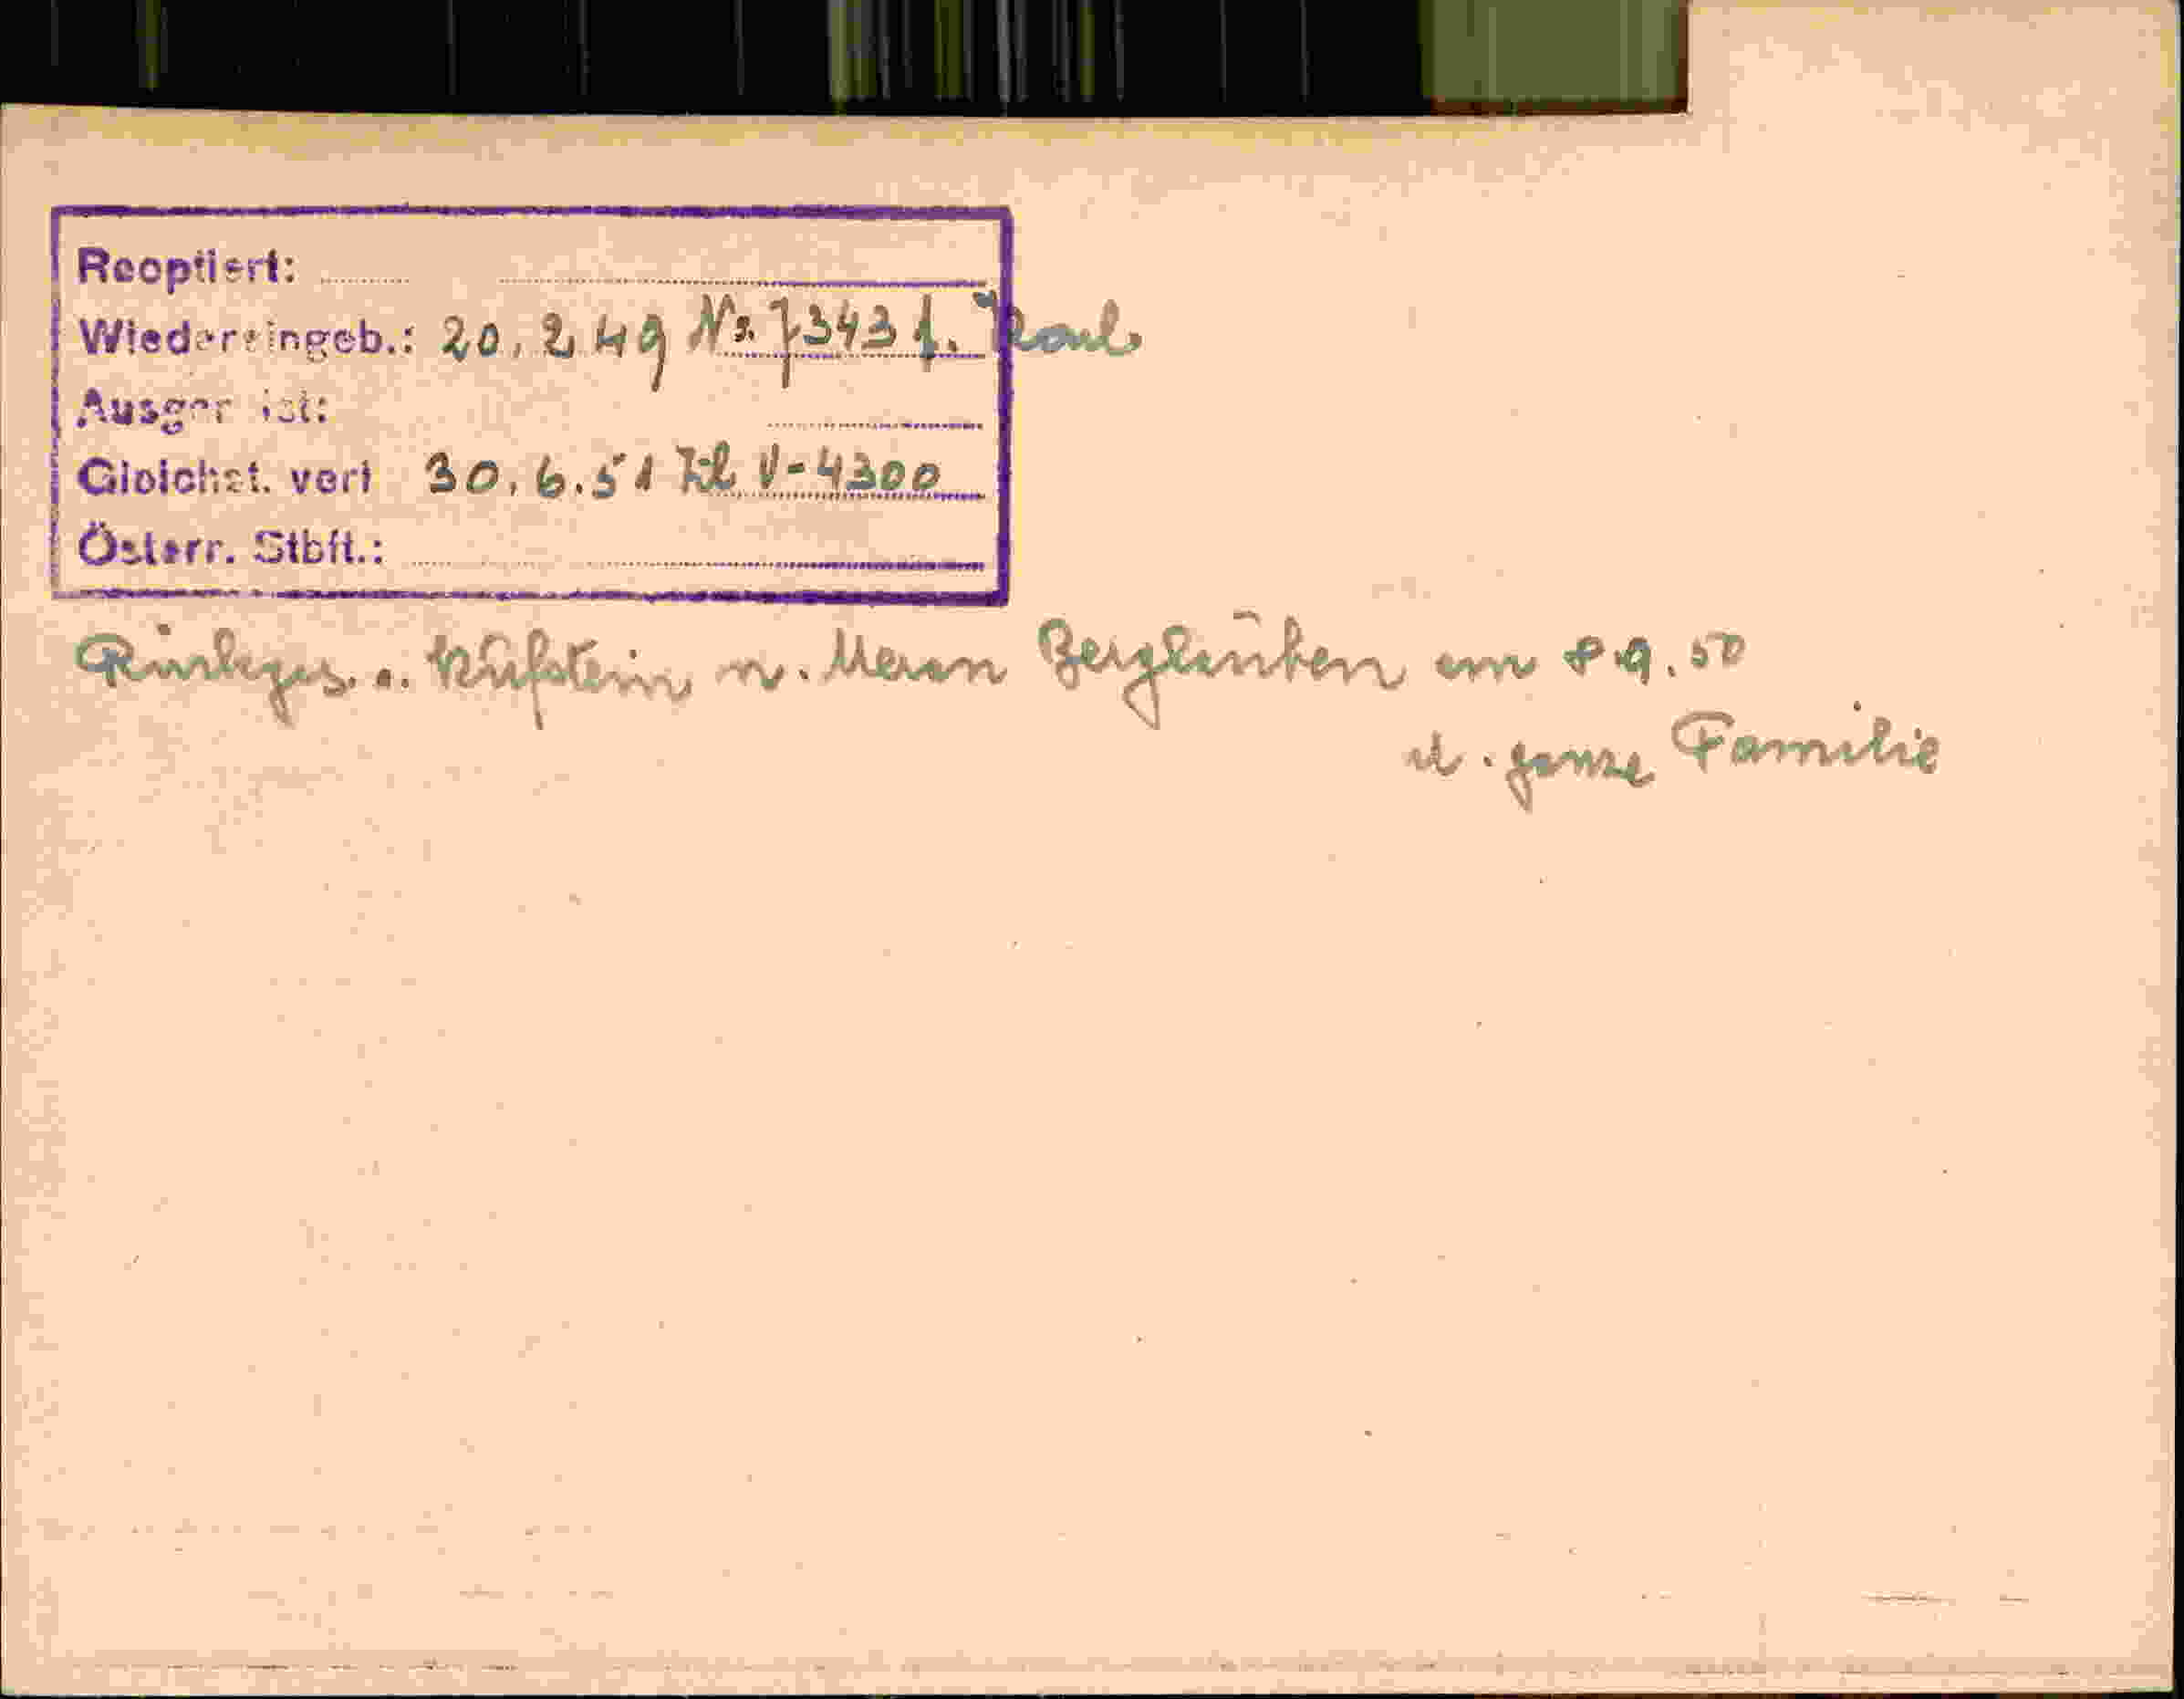 Reoptiert:
Wiedereingeb.: 20.2.49 No. 7343 f. Karl
Ausger ist:
Gleichst. verl 30.6.51 Zl V-4300
Österr. Stbft.:
Rückges. a. Kufstein n. Meran Berglauben am 8.9.50
d. ganze Familie